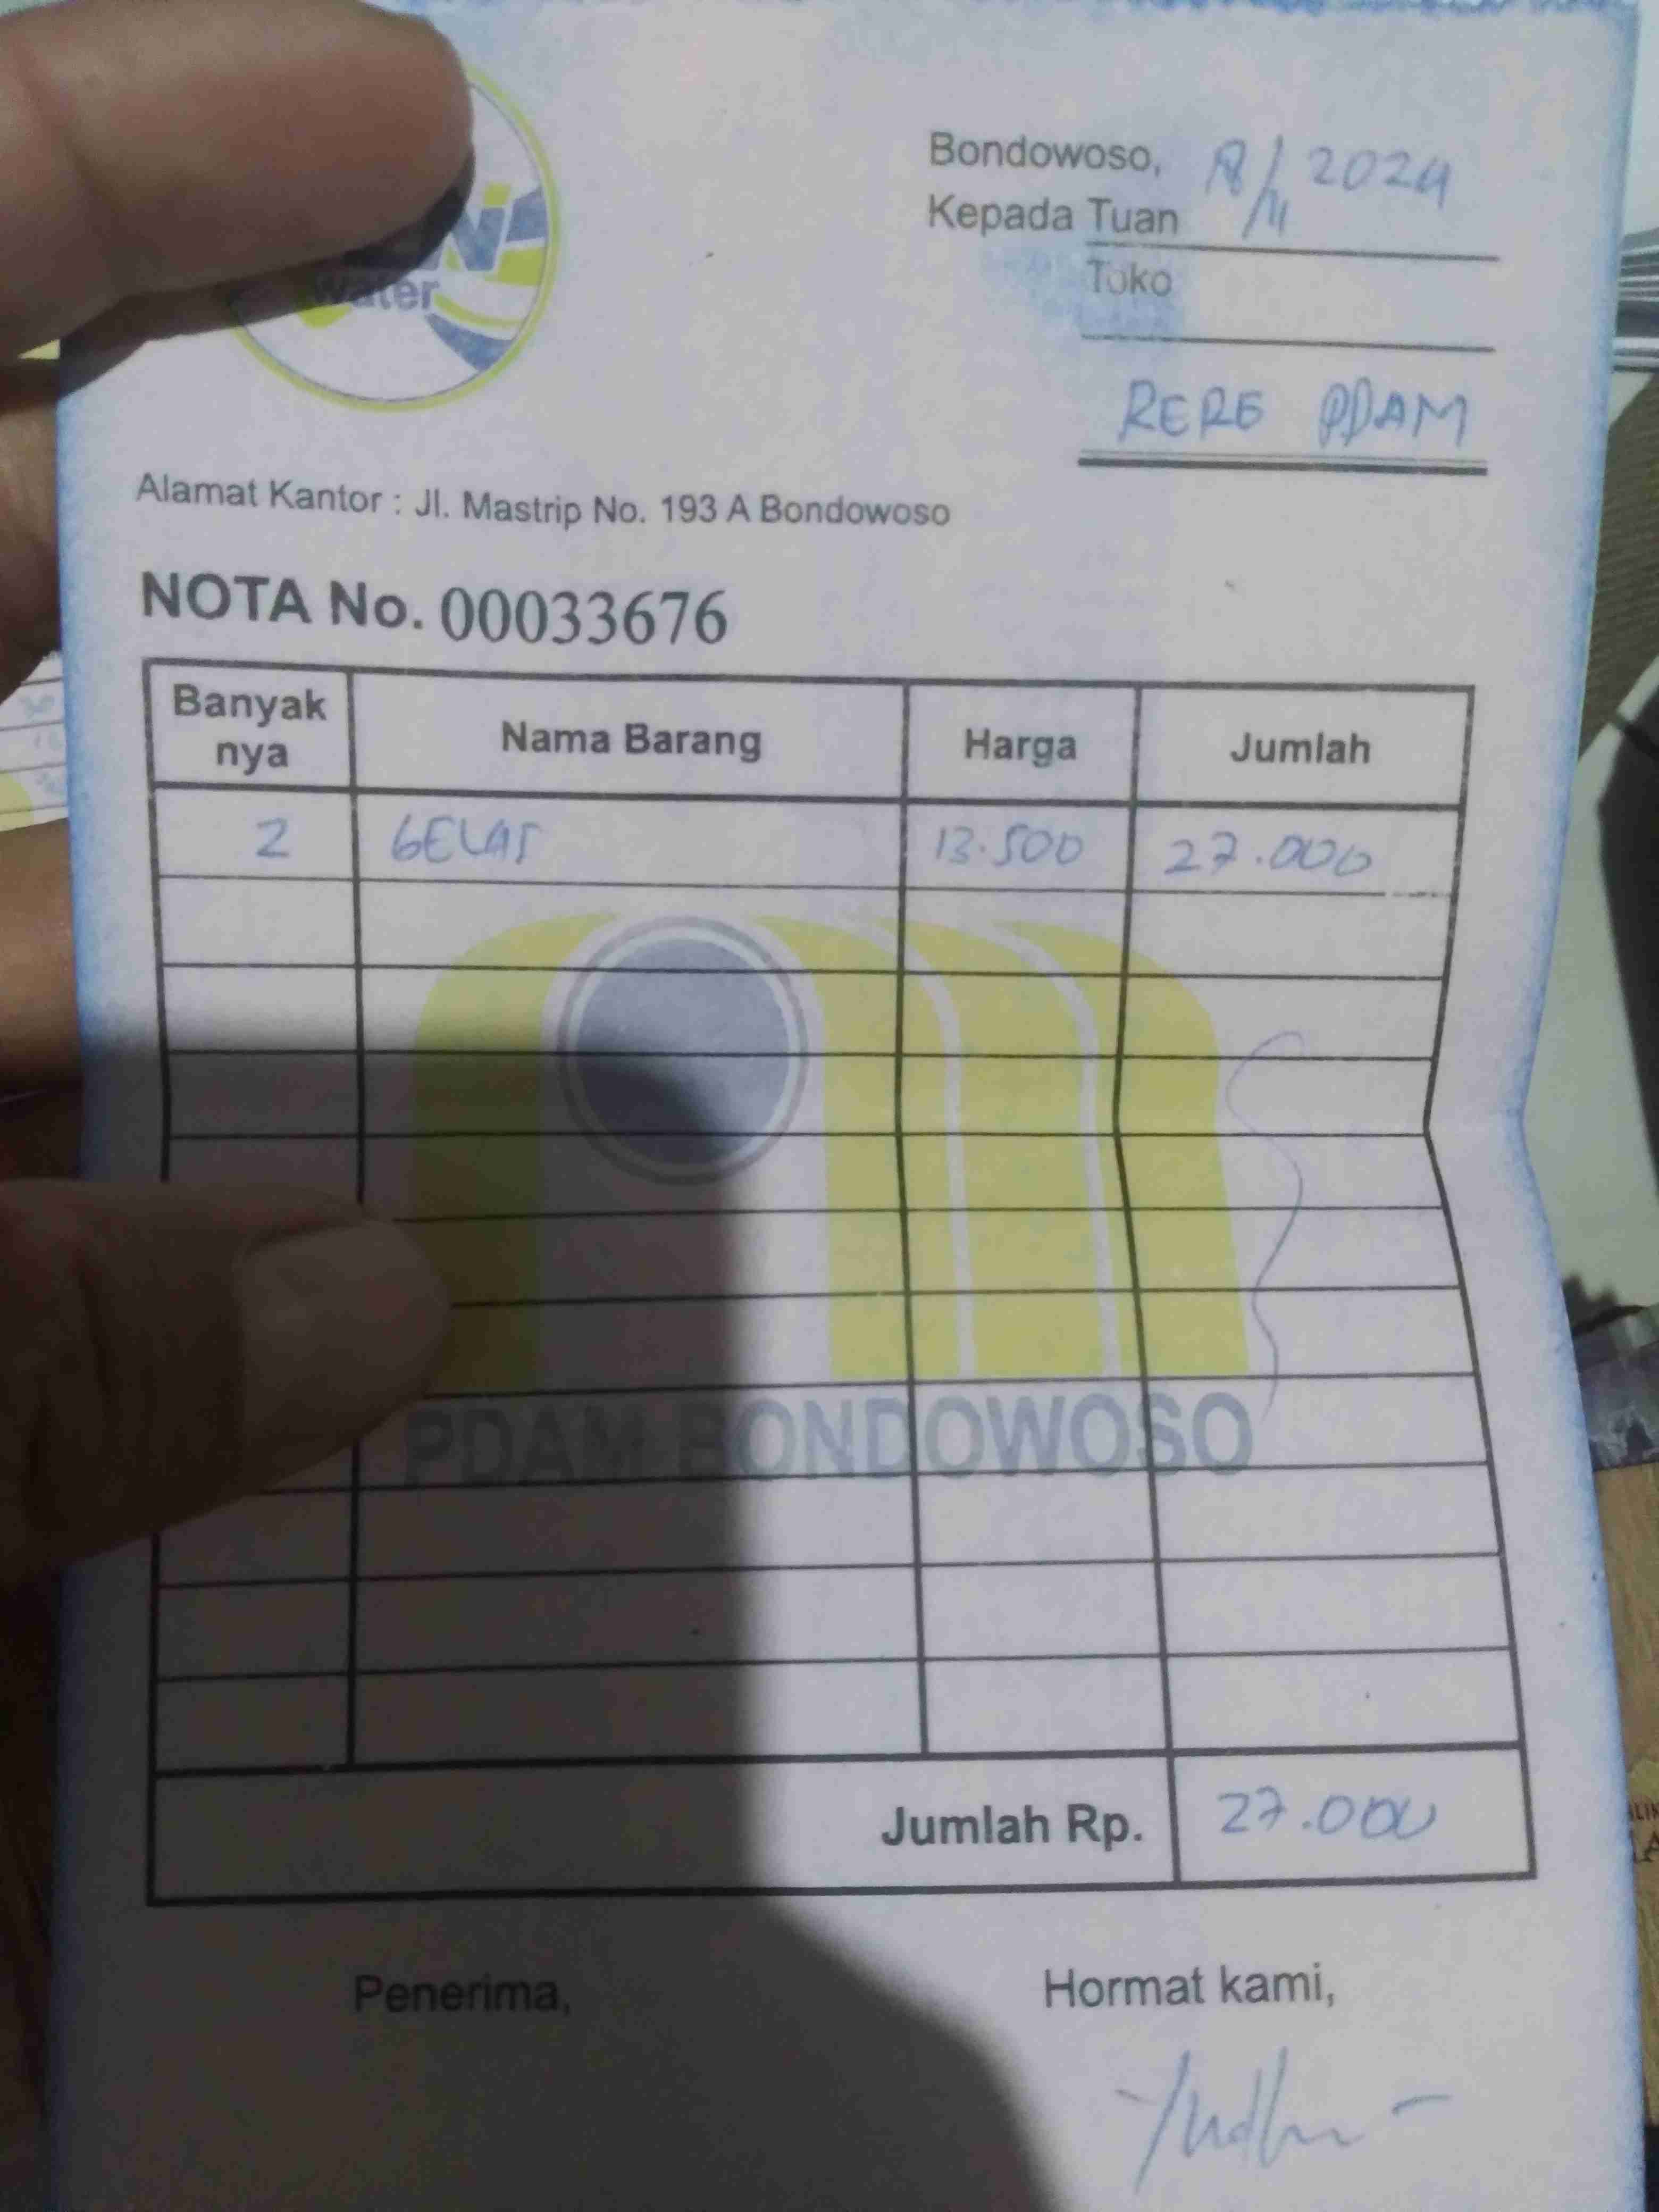 water
Bondowoso, 18/11 2024
Kepada Tuan
Toko
RERE PDAM
Alamat Kantor : Jl. Mastrip No. 193 A Bondowoso
NOTA No. 00033676
Banyak nya Nama Barang Harga Jumlah
2 GELAS 13.500 27.000
PDAM BONDOWOSO
Jumlah Rp. 27.000
Penerima, Hormat kami,